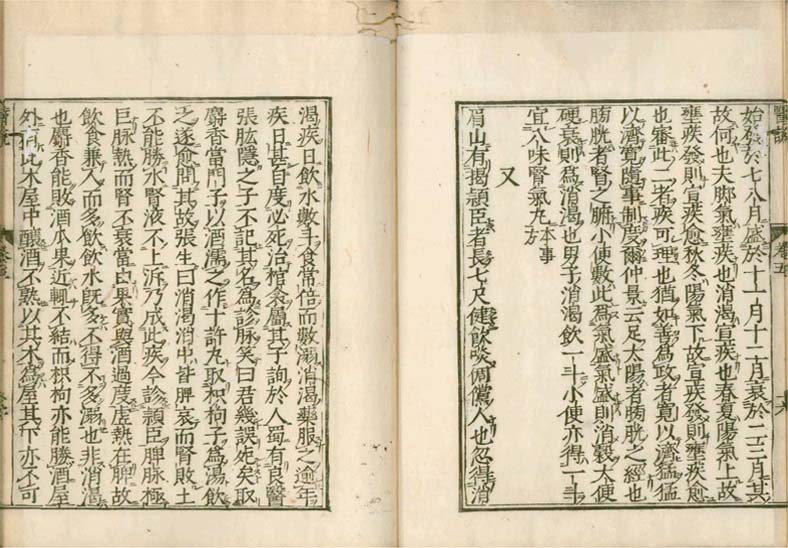 始發於七八月盛於十一月十二月衰於二三月其
故何也夫脚氣壅疾也消渴宣疾也春夏陽氣上故
壅疾發則宣疾愈秋冬陽氣下故宣疾發則壅疾愈
也審此二者疾可理也猶如善為政者寬以濟猛猛
以濟寬隨事制度爾仲景云足太陽者膀胱之經也
膀胱者腎之腑小便數此為氣盛氣盛則消穀大便
硬衰則為消渴也男子消渴飲一斗小便亦得一斗
宜八味腎氣丸本事方
又
眉山有揭頴臣者長七尺健飲啖倜儻人也忽得消
渴疾日飲水數斗食常倍而數溺消渴藥服之逾年
疾日甚自度必死治棺衾屬其子訽於人蜀有良醫
張肱隱之子不記其名為診脉笑曰君幾誤死矣取
麝香當門子以酒濡之作十許丸取枳枸子為湯飲
之遂愈問其故張生曰消渴消中皆脾衰而腎敗土
不能勝水腎液不上泝乃成此疾今診頴臣脾脉極
巨脉熱而腎不衰當由果實與酒過度虛熱在脾故
飲食兼人而多飲飲水既多不得不多溺也非消渴
也麝香能敗酒瓜果近輒不結而枳枸亦能勝酒屋
外有此木屋中釀酒不熟以其木為屋其下亦不可
醫說
卷五